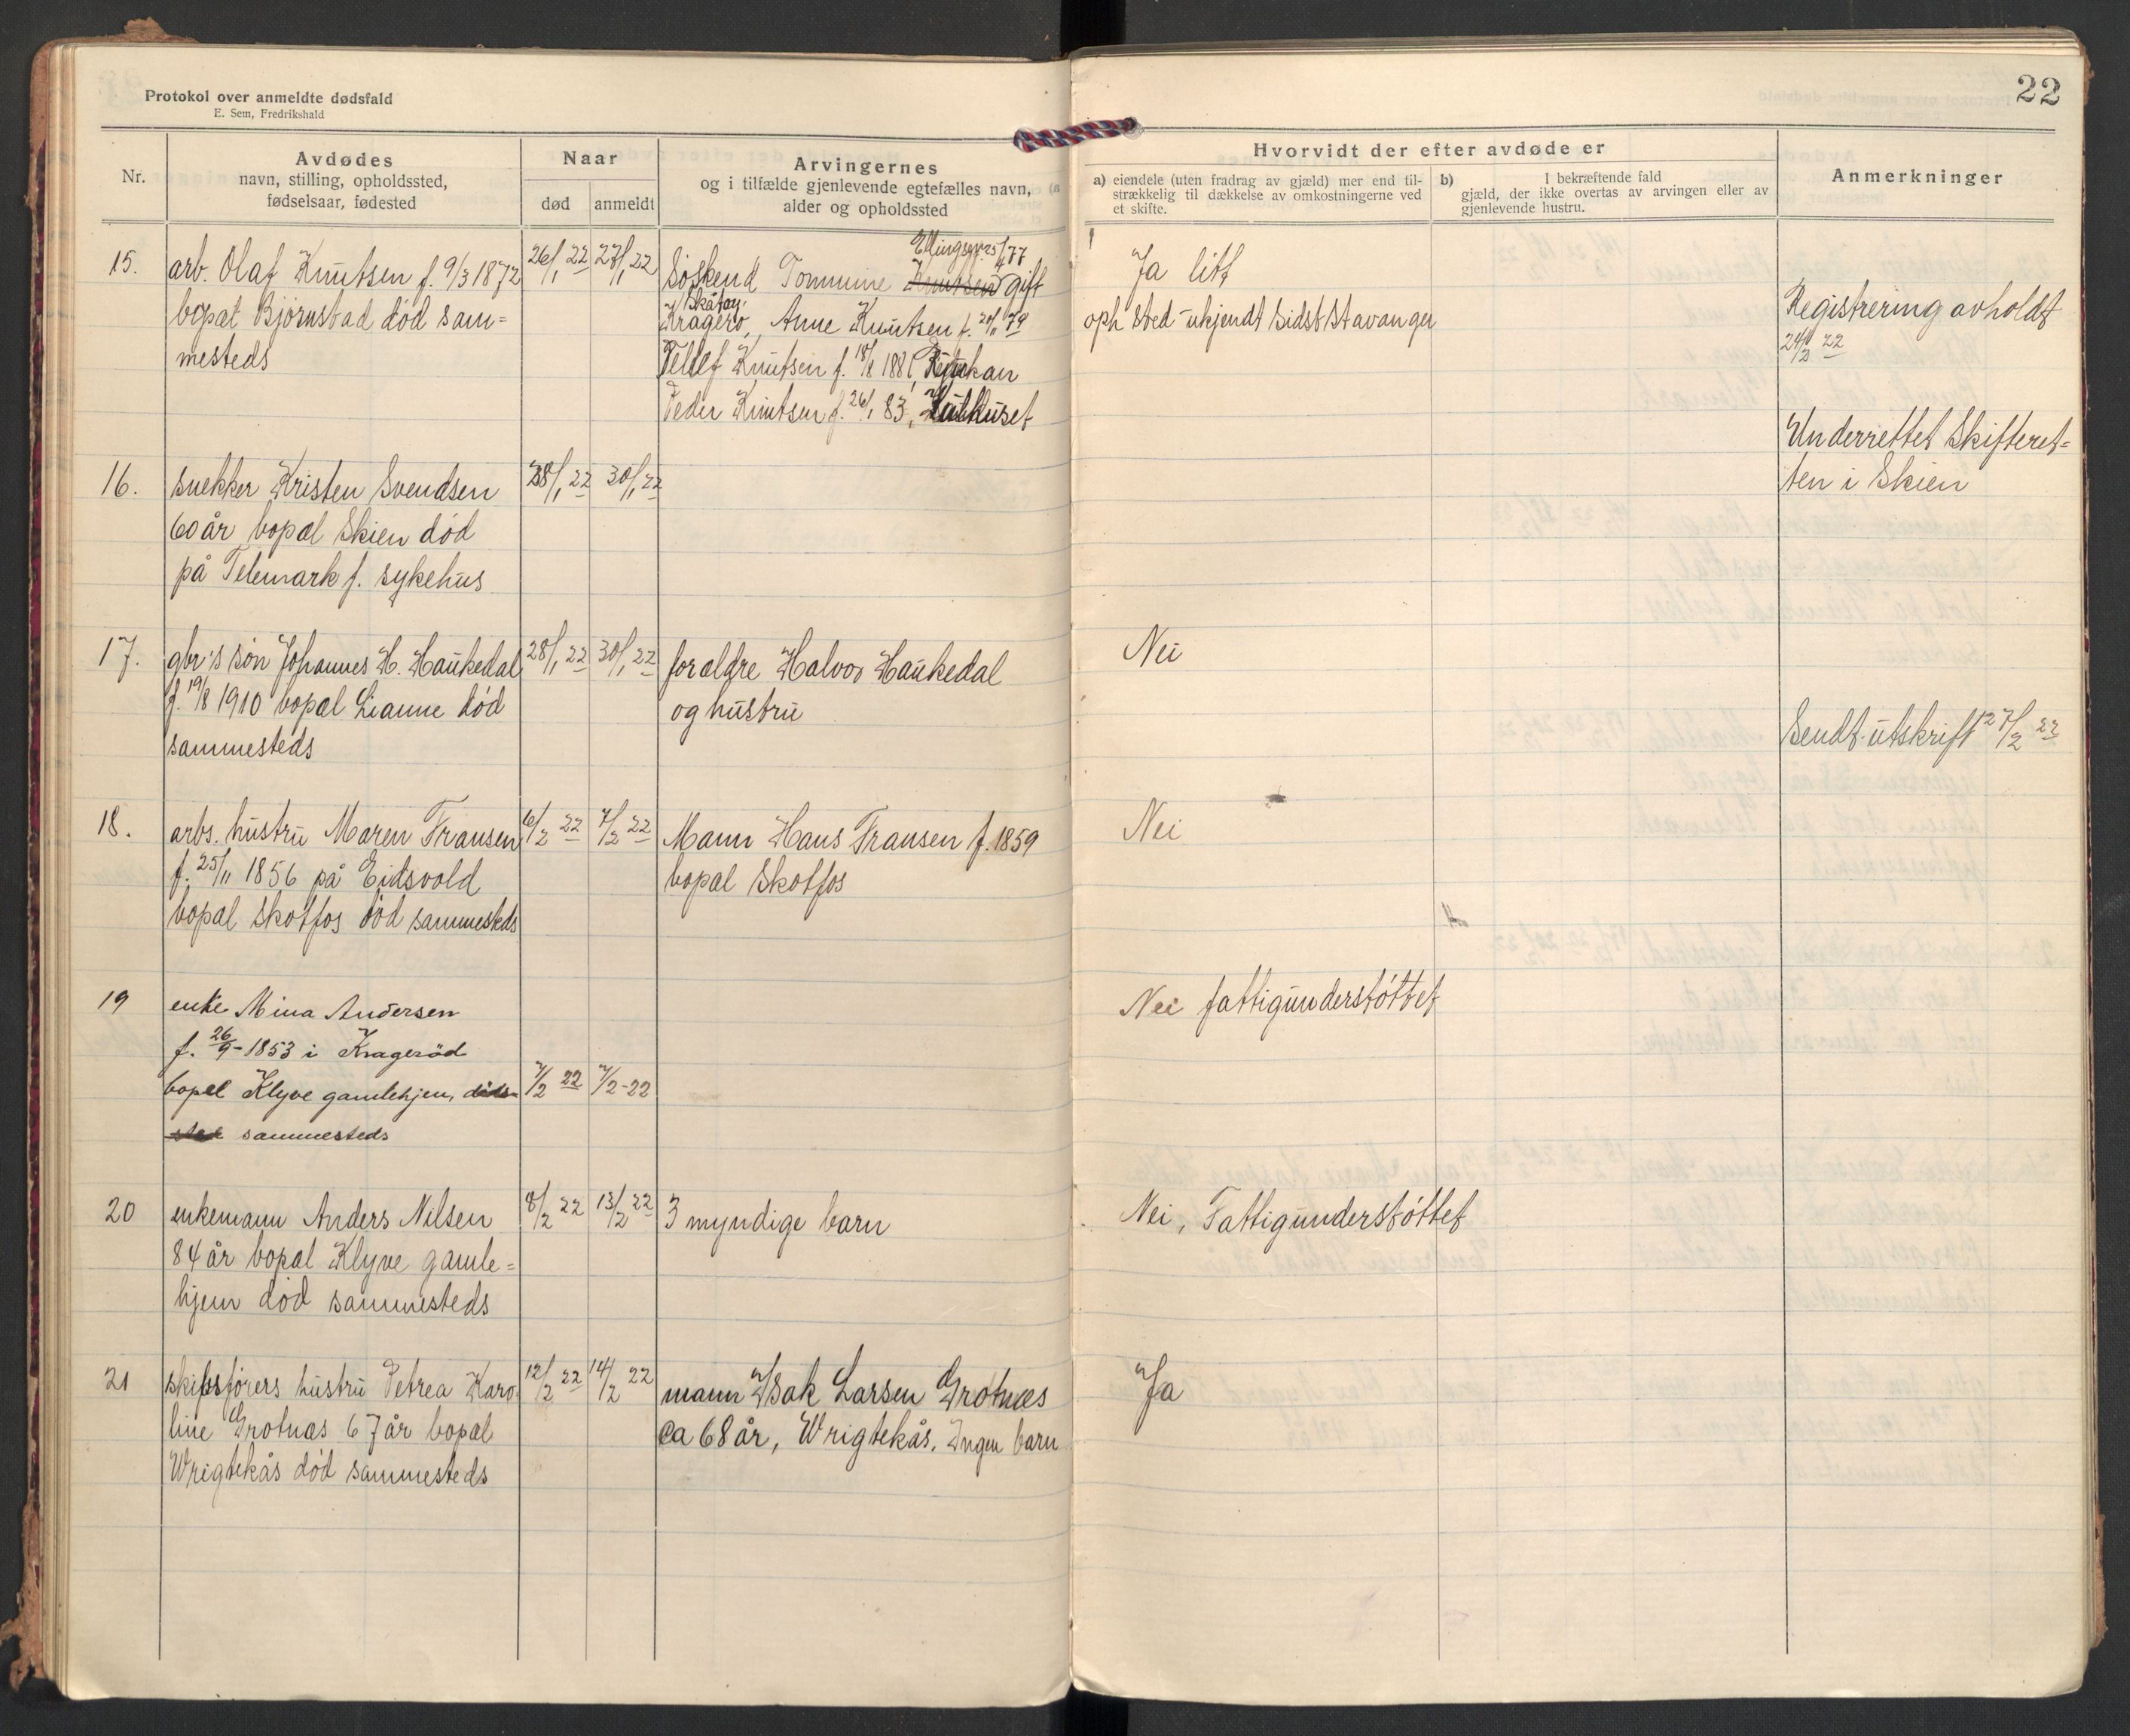 22
Protokol over anmeldte dødsfald
E. Sem, Fredrikshald
Nr.
Avdødes
navn, stilling, opholdssted,
fødselsaar, fødested
Naar
død
anmeldt
Arvingernes
og i tilfælde gjenlevende egtefælles navn,
alder og opholdssted
Hvorvidt der efter avdøde er
a) eiendele (uten fradrag av gjæld) mer end til-
strækkelig til dækkelse av omkostningerne ved
et skifte.
b) I bekræftende fald
gjæld, der ikke overtas av arvingen eller av
gjenlevende hustru.
Anmerkninger
15.
arb. Olaf Knutsen f. 9/3 1872
bopæl Bjørnstad død sam=
mesteds
26/1 22
27/1 22
Ellingsen 25/4 77
Søskend Tommine Knutsen gift
Skåtøy.
Kragerø, Anne Knutsen f. 20/11 79
Tellef Knutsen f. 18/8 1881, Rjukan
Peder Knutsen f. 26/1 83,
Ja litt
oph sted ukjendt sidst Stavanger
Registrering avholdt
24/3 22
16.
snekker Kristen Svendsen
60 år bopæl Skien død
på Telemark f. sykehus
28/1 22
30/1 22
Underrettet Skifteret=
ten i Skien
17.
gbr's søn Johannes H. Haukedal
f. 19/8 1910 bopæl Lianne død
sammesteds
28/1 22
30/1 22
foraldre Halvor Haukedal
og hustru
Nei
Sendt utskrift 27/2 22
18.
arbs. hustru Maren Fransen
f. 25/11 1856 på Eidsvold
bopæl Skotfos død sammesteds
6/2 22
7/2 22
Mann Hans Fransen f. 1859
bopæl Skotfos
Nei
19
enke Mina Andersen
f. 26/9 - 1853 i Kragerød
bopel Klyve gamlehjem, døds-
sted sammesteds
7/2 22
7/2-22
Nei fattigunderstøttet
20
enkemann Anders Nilsen
84 år bopal Klyve gamle=
hjem død sammesteds
8/2 22
13/2 22
3 myndige barn
Nei, Fattigunderstøttet
21
skipsførers hustru Petrea Karo-
line Grotnæs 67 år bopæl
Wrigtekås død sammesteds
12/2 22
14/2 22
mann Isak Larsen Grotnæs
ca 68 år, Wrigtekås, Ingen barn
Ja